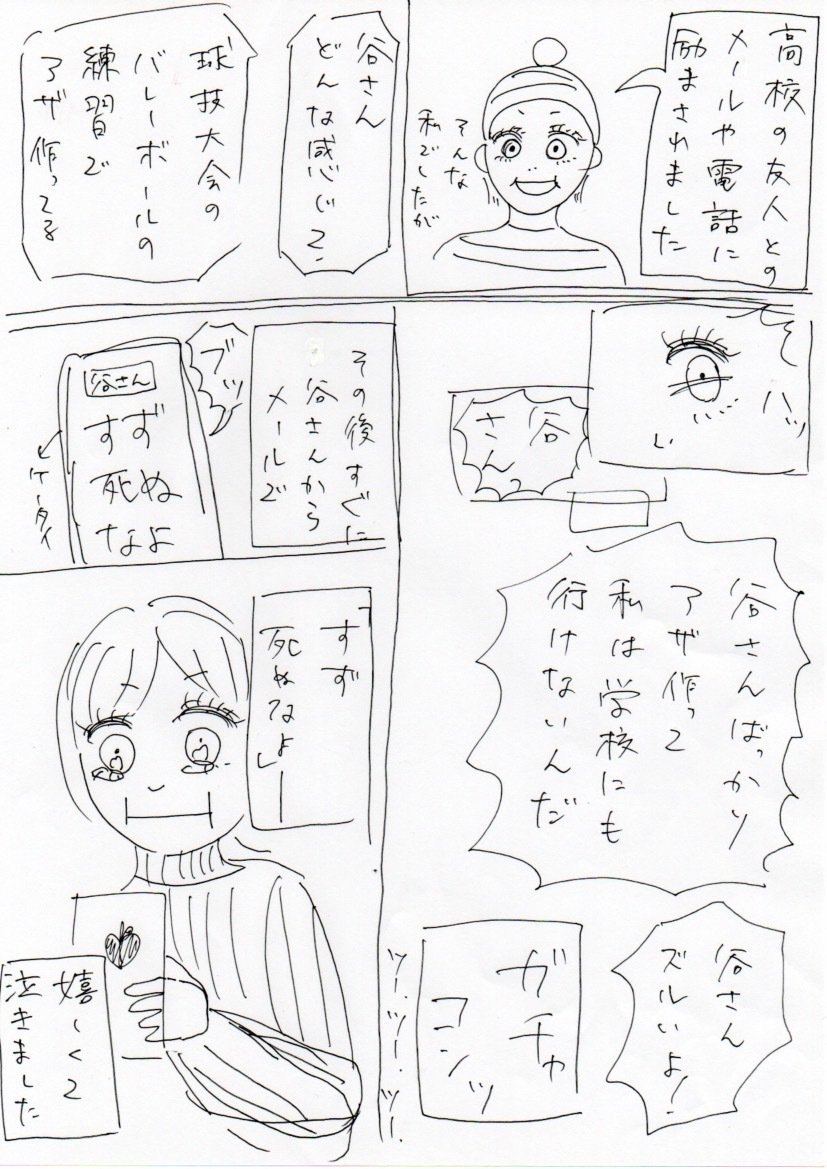 高校の友人との
メールや電話に
励まされました
そんな
私でしたが
谷さん
どんな感じで
球技大会の
バレーボールの
練習で
アザ作ってる
ハッ
谷
さんっ
谷さんばっかり
アザ作って
私は学校にも
行けないんだ
谷さん
ズルいよ!
ガチャ
コンッ
ツー、ツー、ツー、
その後すぐに
谷さんから
メールで
ブッ
谷さん
すず
死ぬ
なよ
ケータイ
「すず
死ぬなよー」
嬉しくて
泣きました